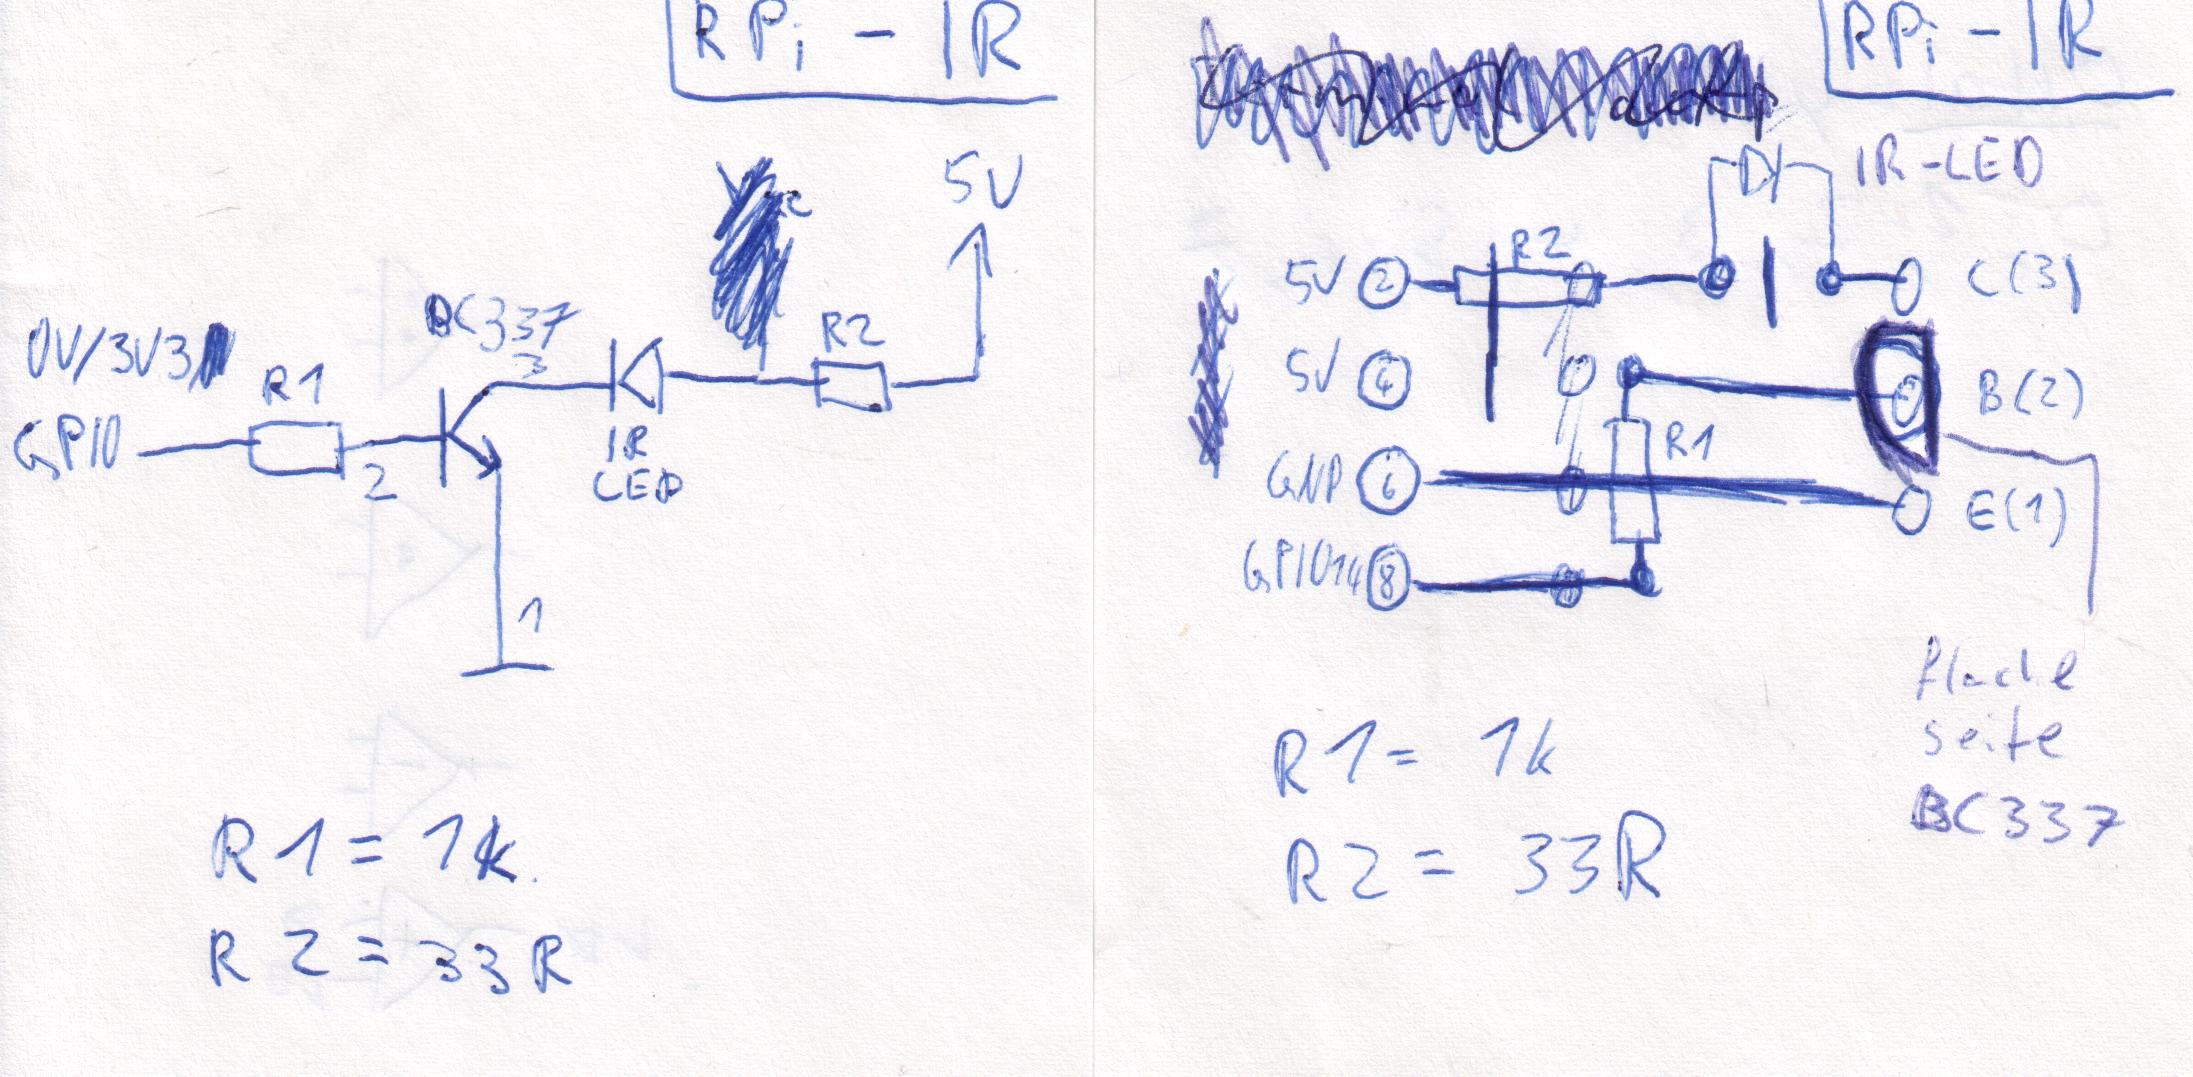 RPi - IR
5V
BC337
0V/3V3
R1
3
R2
GPIO
2
IR
LED
1
R1 = 1k
R2 = 33R
RPi - IR
IR-LED
R2
5V 2
C(3)
5V 4
B(2)
R1
GND 6
E(1)
GPIO14 8
flache
seite
BC337
R1 = 1k
R2 = 33R